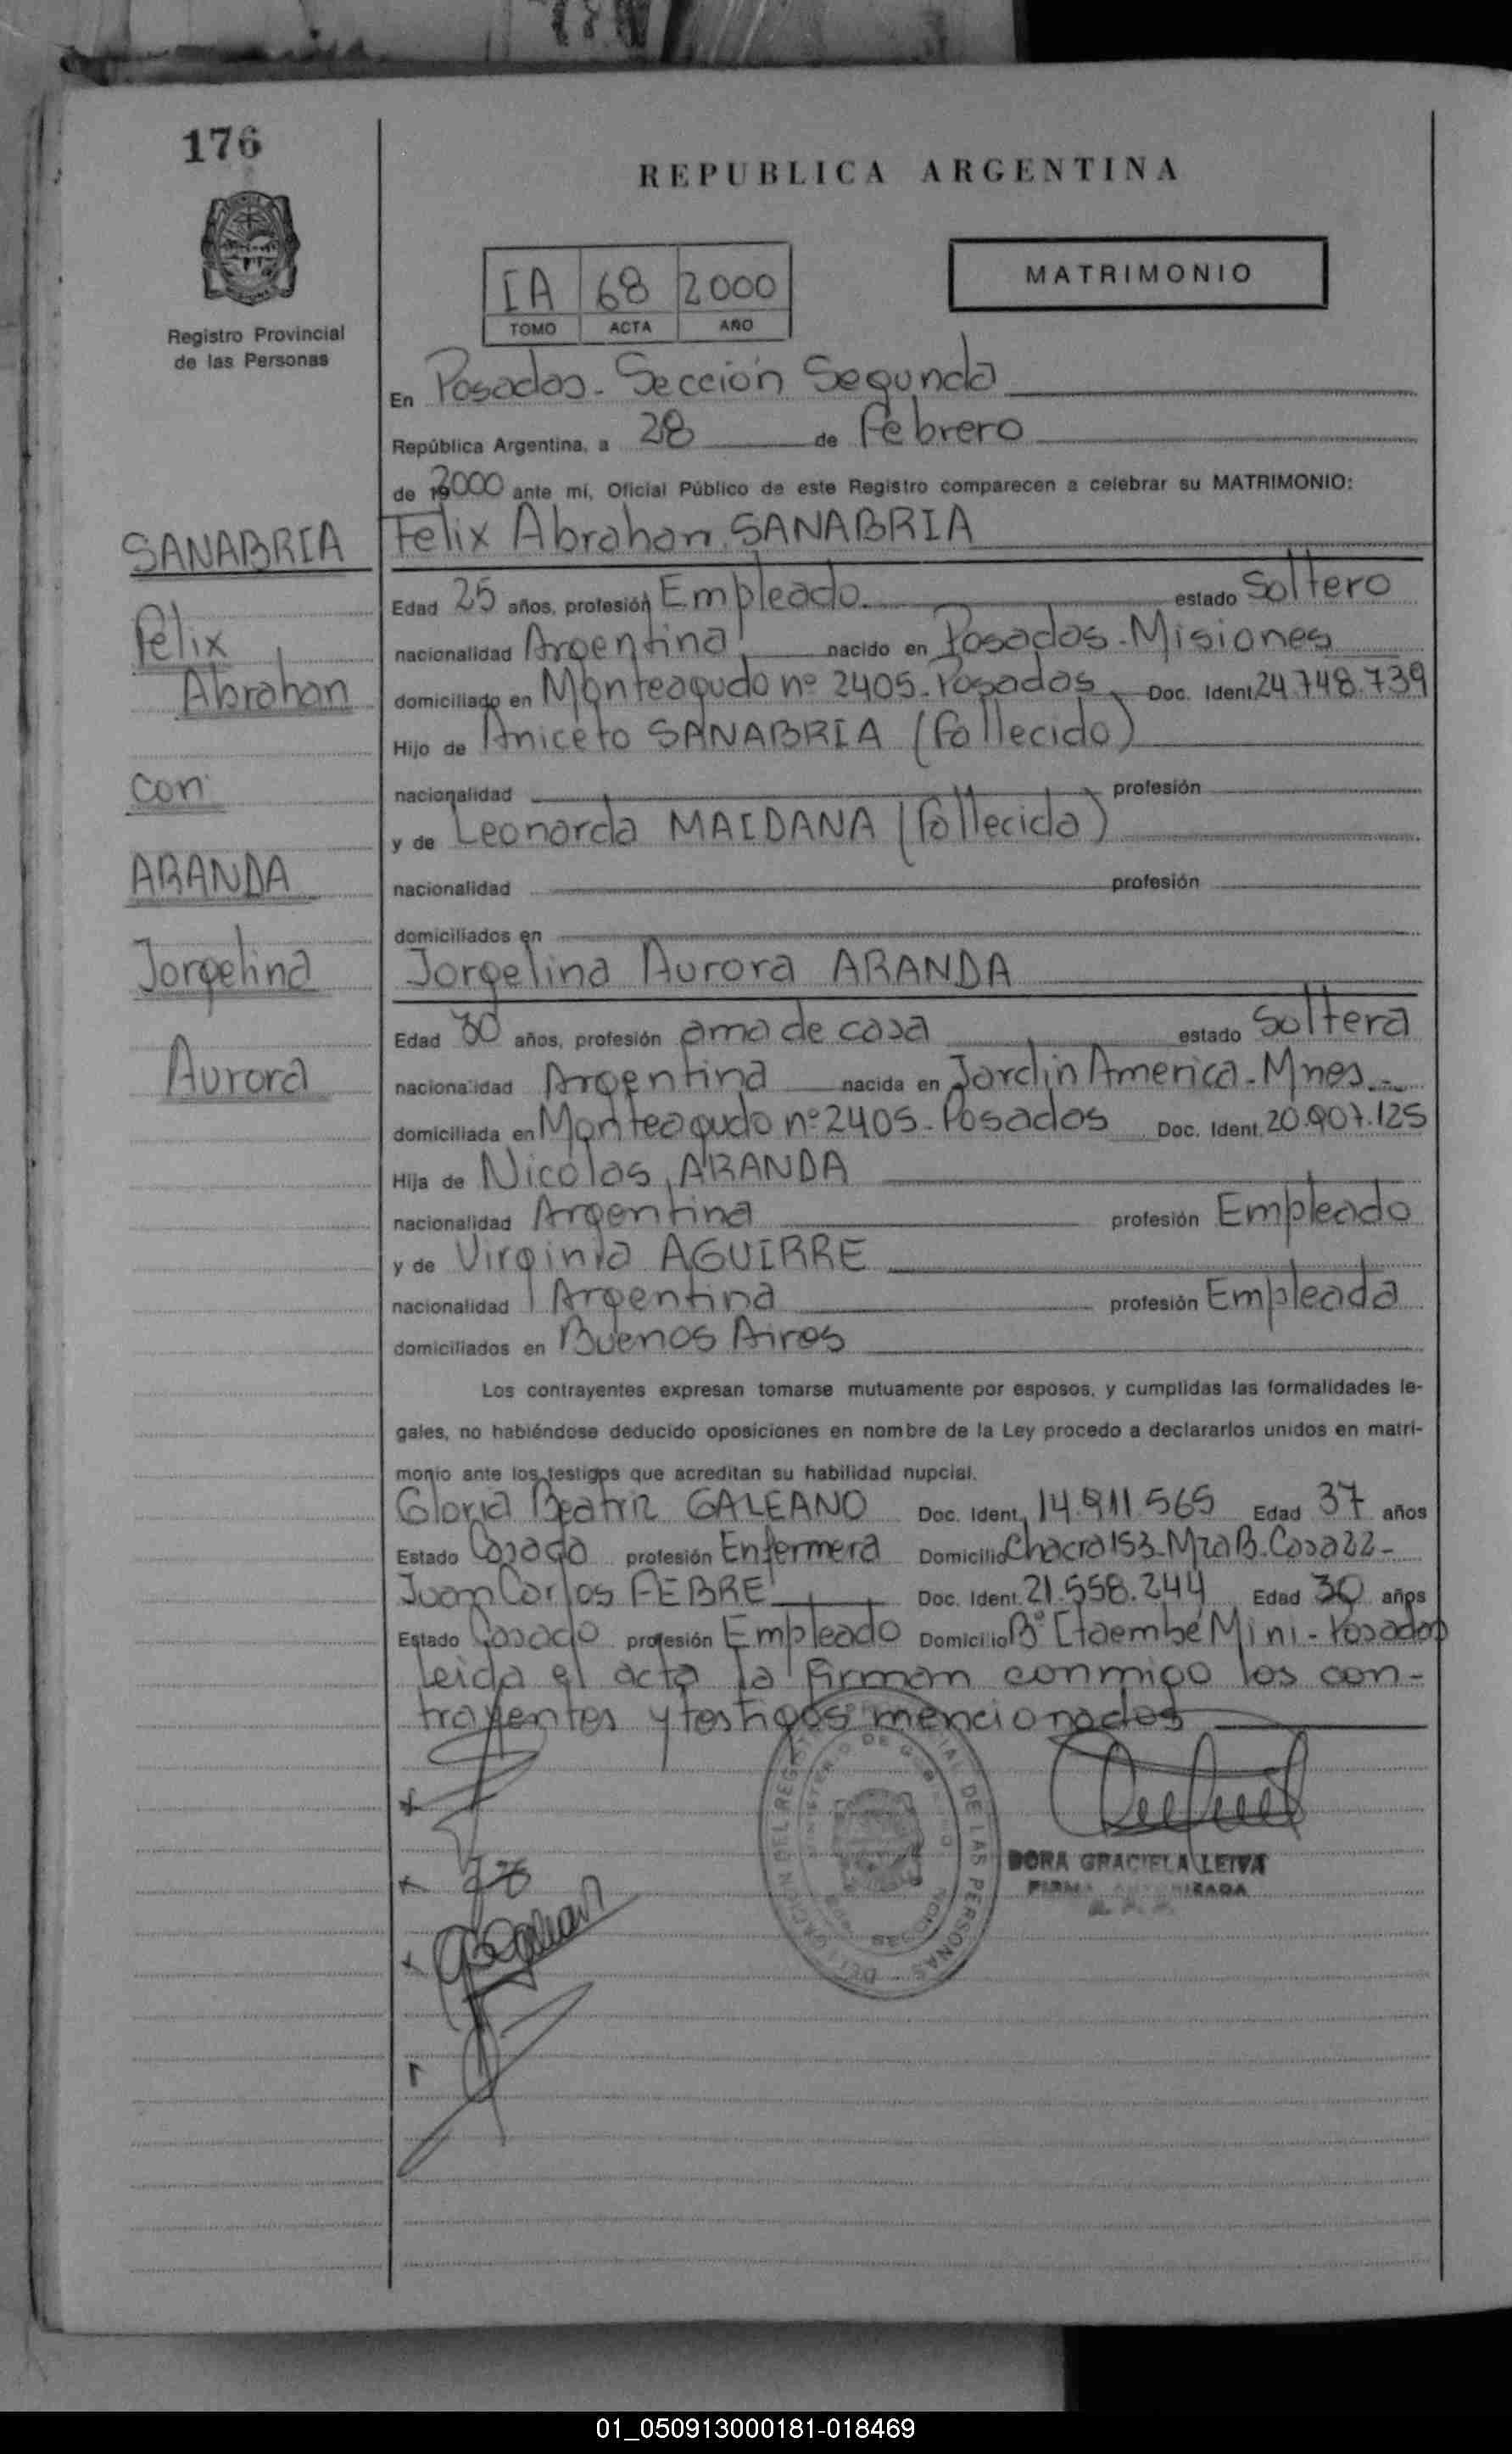 176
REPUBLICA ARGENTINA
IA 68 2000
TOMO ACTA AÑO
MATRIMONIO
Registro Provincial
de las Personas
En Posadas - Sección Segunda
República Argentina, a 28 de Febrero
de 2000 ante mí, Oficial Público de este Registro comparecen a celebrar su MATRIMONIO:
SANABRIA
Felix
Abrahan
con
ARANDA
Jorgelina
Aurora
Felix Abrahan SANABRIA
Edad 25 años, profesión Empleado estado Soltero
nacionalidad Argentina nacido en Posadas - Misiones
domiciliado en Monteagudo nº 2405 - Posadas Doc. Ident. 24.748.739
Hijo de Aniceto SANABRIA (fallecido)
nacionalidad profesión
y de Leonarda MAIDANA (fallecida)
nacionalidad profesión
domiciliados en
Jorgelina Aurora ARANDA
Edad 30 años, profesión ama de casa estado Soltera
nacionalidad Argentina nacida en Jardin America - Mnes -
domiciliada en Monteagudo nº 2405 - Posadas Doc. Ident. 20.907.125
Hija de Nicolas ARANDA
nacionalidad Argentina profesión Empleado
y de Virginia AGUIRRE
nacionalidad Argentina profesión Empleada
domiciliados en Buenos Aires
Los contrayentes expresan tomarse mutuamente por esposos, y cumplidas las formalidades le-
gales, no habiéndose deducido oposiciones en nombre de la Ley procedo a declararlos unidos en matri-
monio ante los testigos que acreditan su habilidad nupcial.
Gloria Beatriz GALEANO Doc. Ident. 14.911.565 Edad 37 años
Estado Casada profesión Enfermera Domicilio Chacra 153 - Mza B - Casa 22 -
Juan Carlos FEBRE Doc. Ident. 21.558.244 Edad 30 años
Estado Casado profesión Empleado Domicilio Bº Itaembé Mini - Posadas
Leida el acta la firman conmigo los con-
trayentes y testigos mencionados
DORA GRACIELA LEIVA
01_050913000181-018469